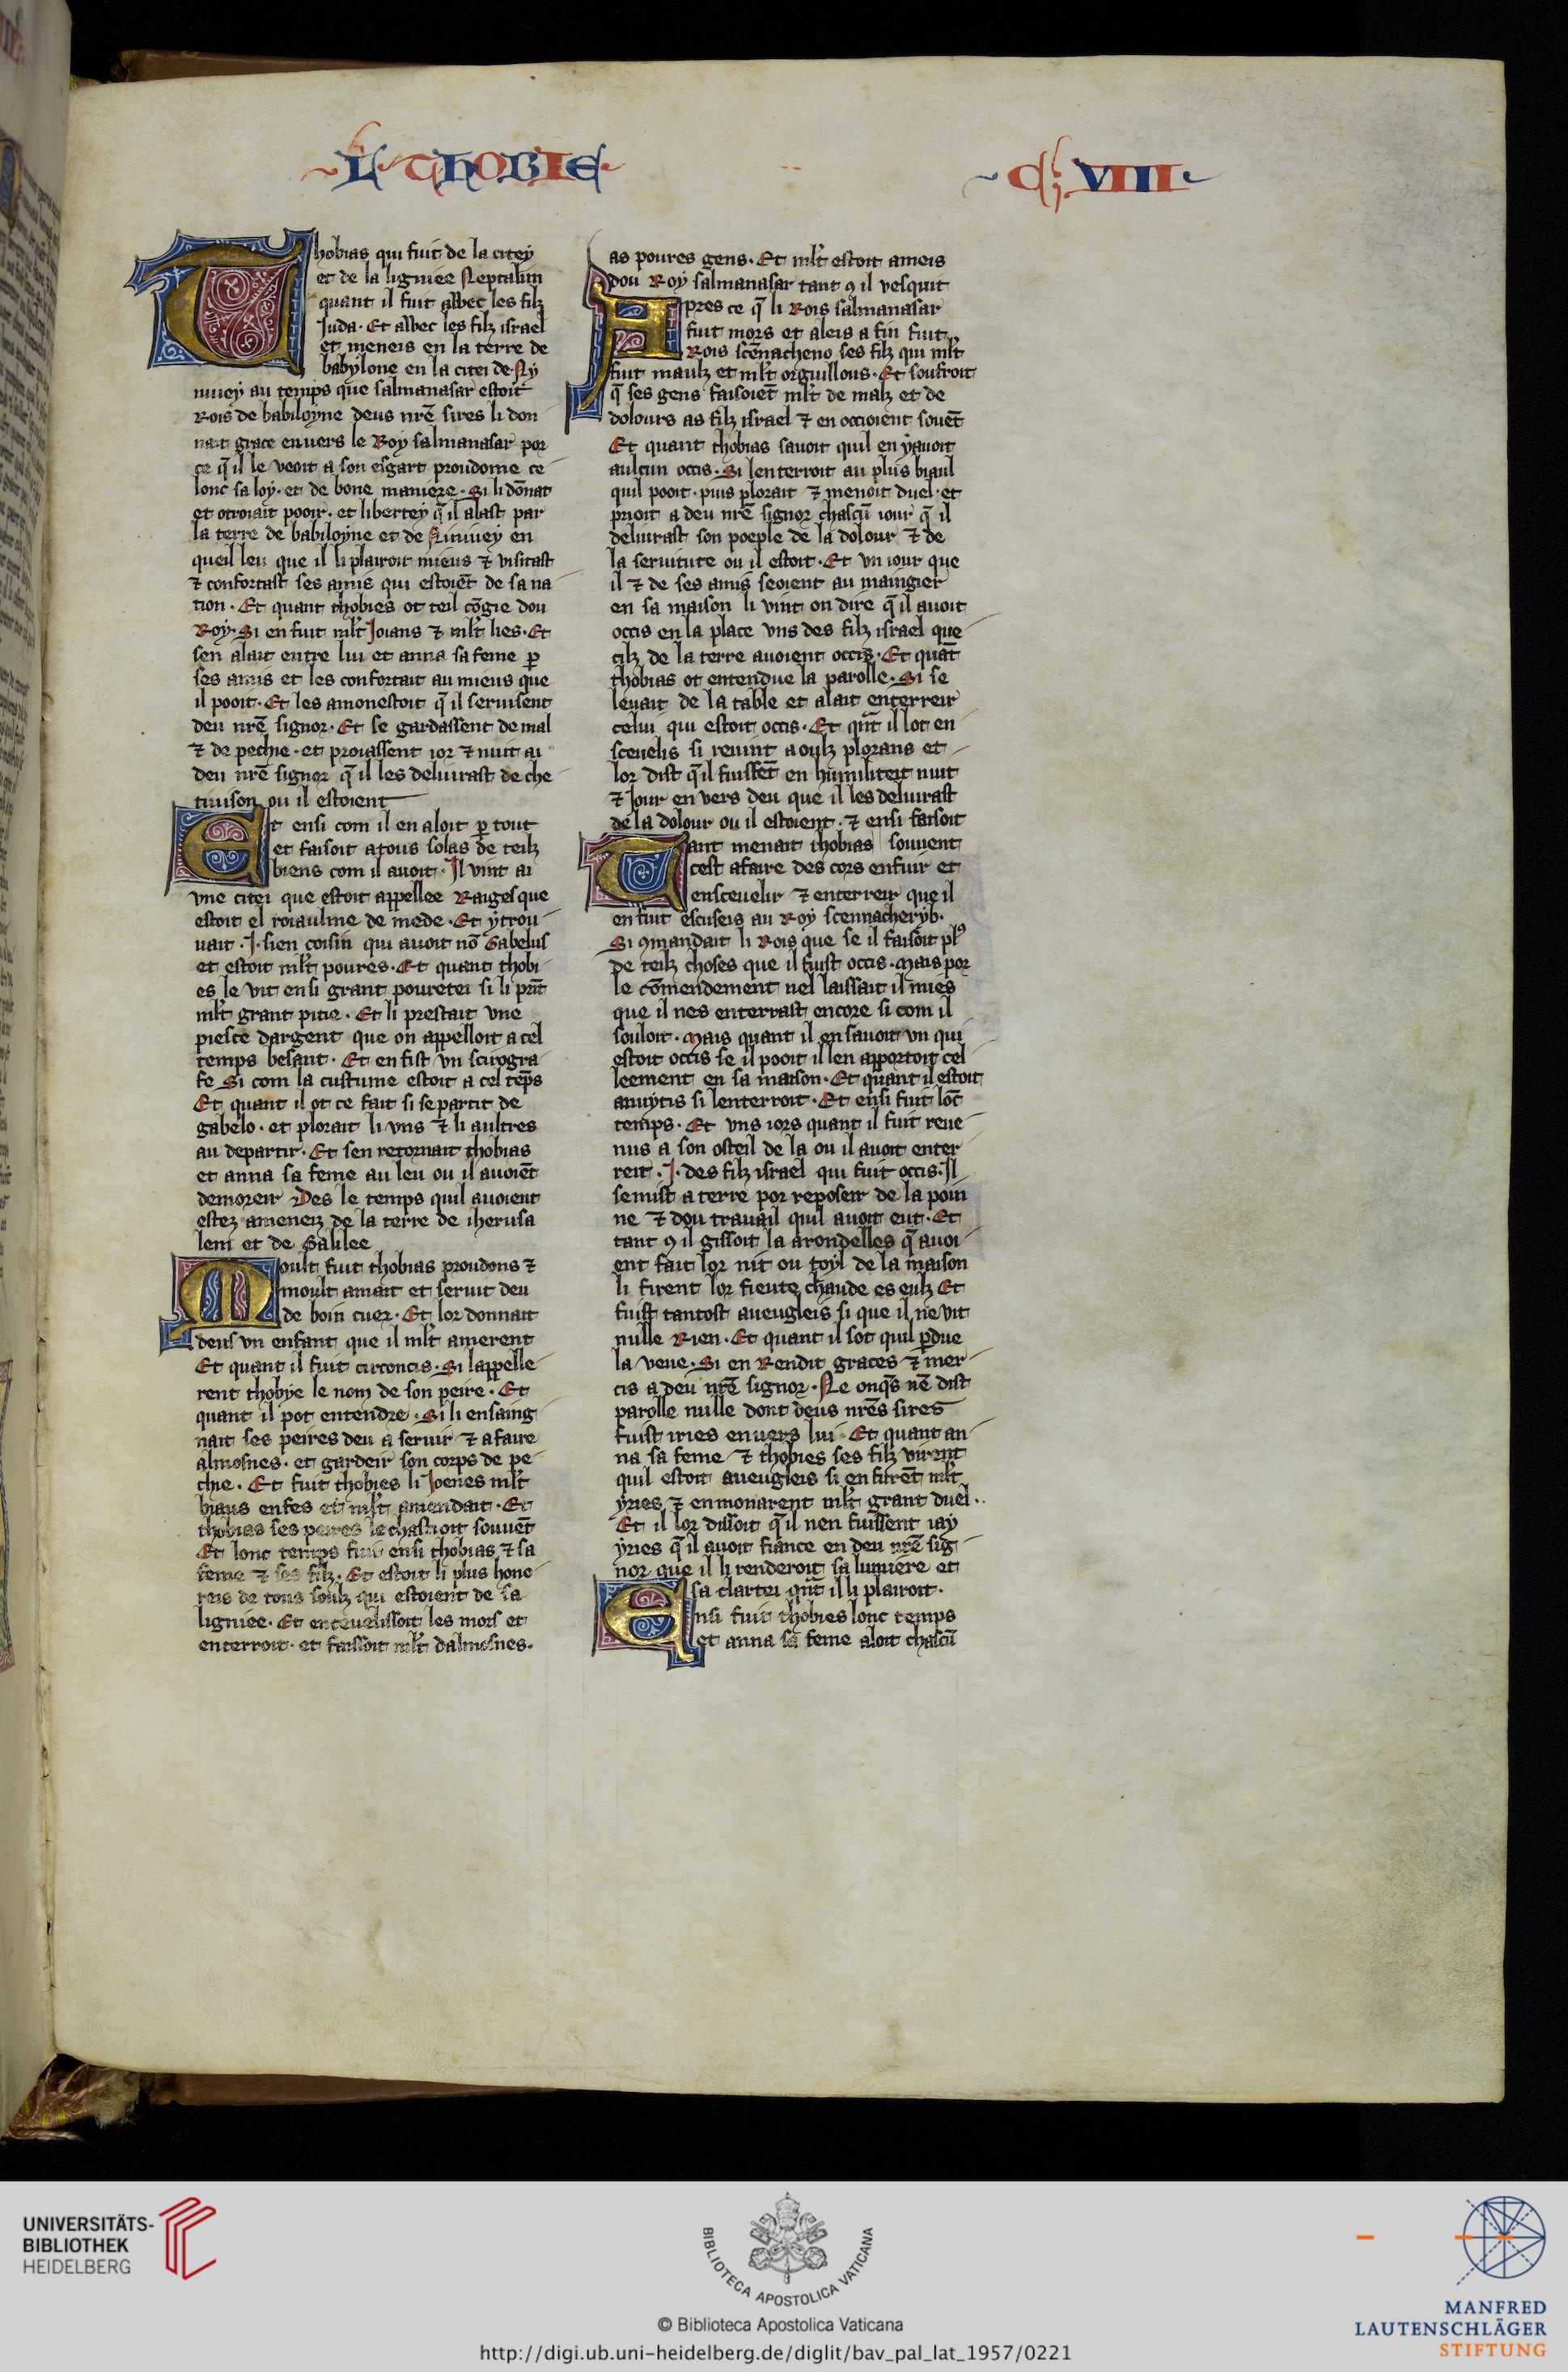 L THOBIE
C VIII
Thobias qui fuit de la citey
et de la ligniee Neptalim
quant il fuit awec les filz
Juda. Et awec les filz israel
et meneis en la terre de
babylone en la citei de Ny
niuey au temps que salmanasar estoit
Rois de babiloyne deus nr̄e sires li don
nait grace enuers le Roy salmanasar por
ce q̄ il le veoit a son esgart proudome ce
lonc sa loy. et de bone maniere. Si li dōnat
et otroiait pooir. et libertey q̄ il alast par
la terre de babiloyne et de Niniuey en
queil leu que il li plairoit mieus ⁊ visitast
⁊ confortast ses amis qui estoiēt de sa na
tion. Et quant thobies ot teil cōgie dou
Roy. Si en fuit ml't Joians ⁊ ml't lies. Et
sen alait entre lui et anna sa feme p̄
ses amis et les confortait au mieus que
il pooit. Et les amonestoit q̄ il seruisent
deu nr̄e signor. Et se gardassent de mal
⁊ de pechie. et proiassent ior ⁊ nuit ai
deu nr̄e signor q̄ il les deliurast de che
tiuison ou il estoient
Et ensi com il en aloit p̄ tout
et faisoit a tous solas de teilz
biens com il auoit. Il vint ai
vne citei que estoit appellee Raiges que
estoit el roiaulme de mede. Et ytrou
uait .J. sien coisin qui auoit nō Gabelus
et estoit ml't poures. Et quant thobi
es le vit en si grant pouretei si li pn̄t
ml't grant pitie. Et li prestait vne
piesce dargent que on appelloit a cel
temps besant. Et en fist vn scirogra
fe Si com la custume estoit a cel tēps
Et quant il ot ce fait si se partit de
gabelo. et plorait li vns ⁊ li aultres
au departir. Et sen retornait thobias
et anna sa feme au leu ou il auoiēt
demoreir Des le temps quil auoient
estez ameneiz de la terre de iherusa
lem et de Galilee
Moult fuit thobias proudons ⁊
moult amait et seruit deu
de boin cuer. Et lor donnait
deus vn enfant que il ml't amerent
Et quant il fuit circoncis. Si lappelle
rent thobye le nom de son peire. Et
quant il pot entendre. Si li ensaing
nait ses peires deu a seruir ⁊ a faire
almosnes. et gardeir son corps de pe
chie. Et fuit thobies li Joenes ml't
biaus enfes et ml't amendait. Et
thobias ses peires le chastioit souuēt
Et lonc temps fuit ensi thobias ⁊ sa
feme ⁊ ses filz. Et estoit li plus hono
reis de tous soulz qui estoient de sa
ligniee. Et enceuelissoit les mors et
enterroit. et faissoit ml't dalmosnes.
as poures gens. Et ml't estoit ameis
dou Roy salmanasar tant 9 il vesquit
Apres ce q̄ li Rois salmanasar
fuit mors et aleis a fin fuit
Rois scēnacheno ses filz qui ml't
fuit maulz et ml't orguillous. Et soufroit
q̄ ses gens faisoiēt ml't de malz et de
dolours as filz israel ⁊ en occioient souēt
Et quant thobias sauoit quil en yauoit
aulcun occis. Si lenterroit au plus biaul
quil pooit. puis plorait ⁊ menoit duel. et
prioit a deu nr̄e signor chascū iour q̄ il
deliurast son poeple de la dolour ⁊ de
la seruitute ou il estoit. Et vn iour que
il ⁊ de ses amis seoient au maingier
en sa maison li vint on dire q̄ il auoit
occis en la place vns des filz israel que
cilz de la terre auoient occis. Et quāt
thobias ot entendue la parolle. Si se
leuait de la table et alait enterreir
celui qui estoit occis. Et qn̄t il lot en
sceuelis si reuint a oulz plorans et
lor dist q̄ il fuissēt en humiliteit nuit
⁊ Jour en vers deu que il les deliurast
de la dolour ou il estoient. ⁊ ensi faisoit
Tant menait thobias souuent
cest afaire des cors enfuir et
ensceuelir ⁊ enterreir que il
en fuit escuseis au Roy scennacheryb.
Si 9mandait li Rois que se il faisoit pl9
de teilz choses que il fuist occis. Mais por
le cōmendement nel laissait il mies
que il nes enterrast encore si com il
souloit. Mais quant il en sauoit vn qui
estoit occis se il pooit il len apportoit cel
leement en sa maison. Et quant il estoit
anuytis si lenterroit. Et ensi fuit lōc
temps. Et vns iors quant il fuit reue
nus a son osteil de la ou il auoit enter
reit .J. des filz israel qui fuit occis. Il
semist a terre por reposeir de la poin
ne ⁊ dou trauail quil auoit eut. Et
tant 9 il gissoit la arondelles q̄ auoi
ent fait lor nit ou toyl de la maison
li firent lor fiente chaude es eulz Et
fuist tantost aueugleis si que il ne vit
nulle Rien. Et quant il sot quil p̄due
la veue. Si en Rendit graces ⁊ mer
cis a deu nr̄e signor. Ne onq̄s nē dist
parolle nulle dont deus nr̄es sires
fuist iries enuers lui. Et quant an
na sa feme ⁊ thobies ses filz virent
quil estoit aueugleis si en furēt ml't
yries ⁊ en monarent ml't grant duel..
Et il lor dissoit q̄ il nen fuissent iay
yries q̄ il auoit fiance en deu nr̄e sig
nor que il li renderoit sa lumiere et
sa clartei qn̄t il li plairoit.
Ensi fuit thobies lonc temps
et anna sa feme aloit chascū
UNIVERSITÄTS-
BIBLIOTHEK
HEIDELBERG
BIBLIOTECA APOSTOLICA VATICANA
© Biblioteca Apostolica Vaticana
http://digi.ub.uni-heidelberg.de/diglit/bav_pal_lat_1957/0221
MANFRED
LAUTENSCHLÄGER
STIFTUNG